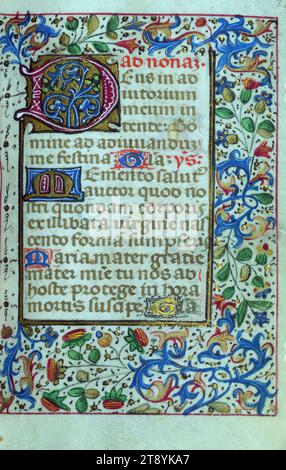 ad nonaz
Deus in ad
iutorium
meum in
tende: Do
mine ad adiuuanduz
me festina Gla. ys:
Memento salut
auctor quod no
stri quondam corpor
ex illibata virgine na
cendo formā
Maria mater gratie
mater mie tu nos ab
hoste protege in hora
mortis suscipe Gla
alamy - 2T8YKA7